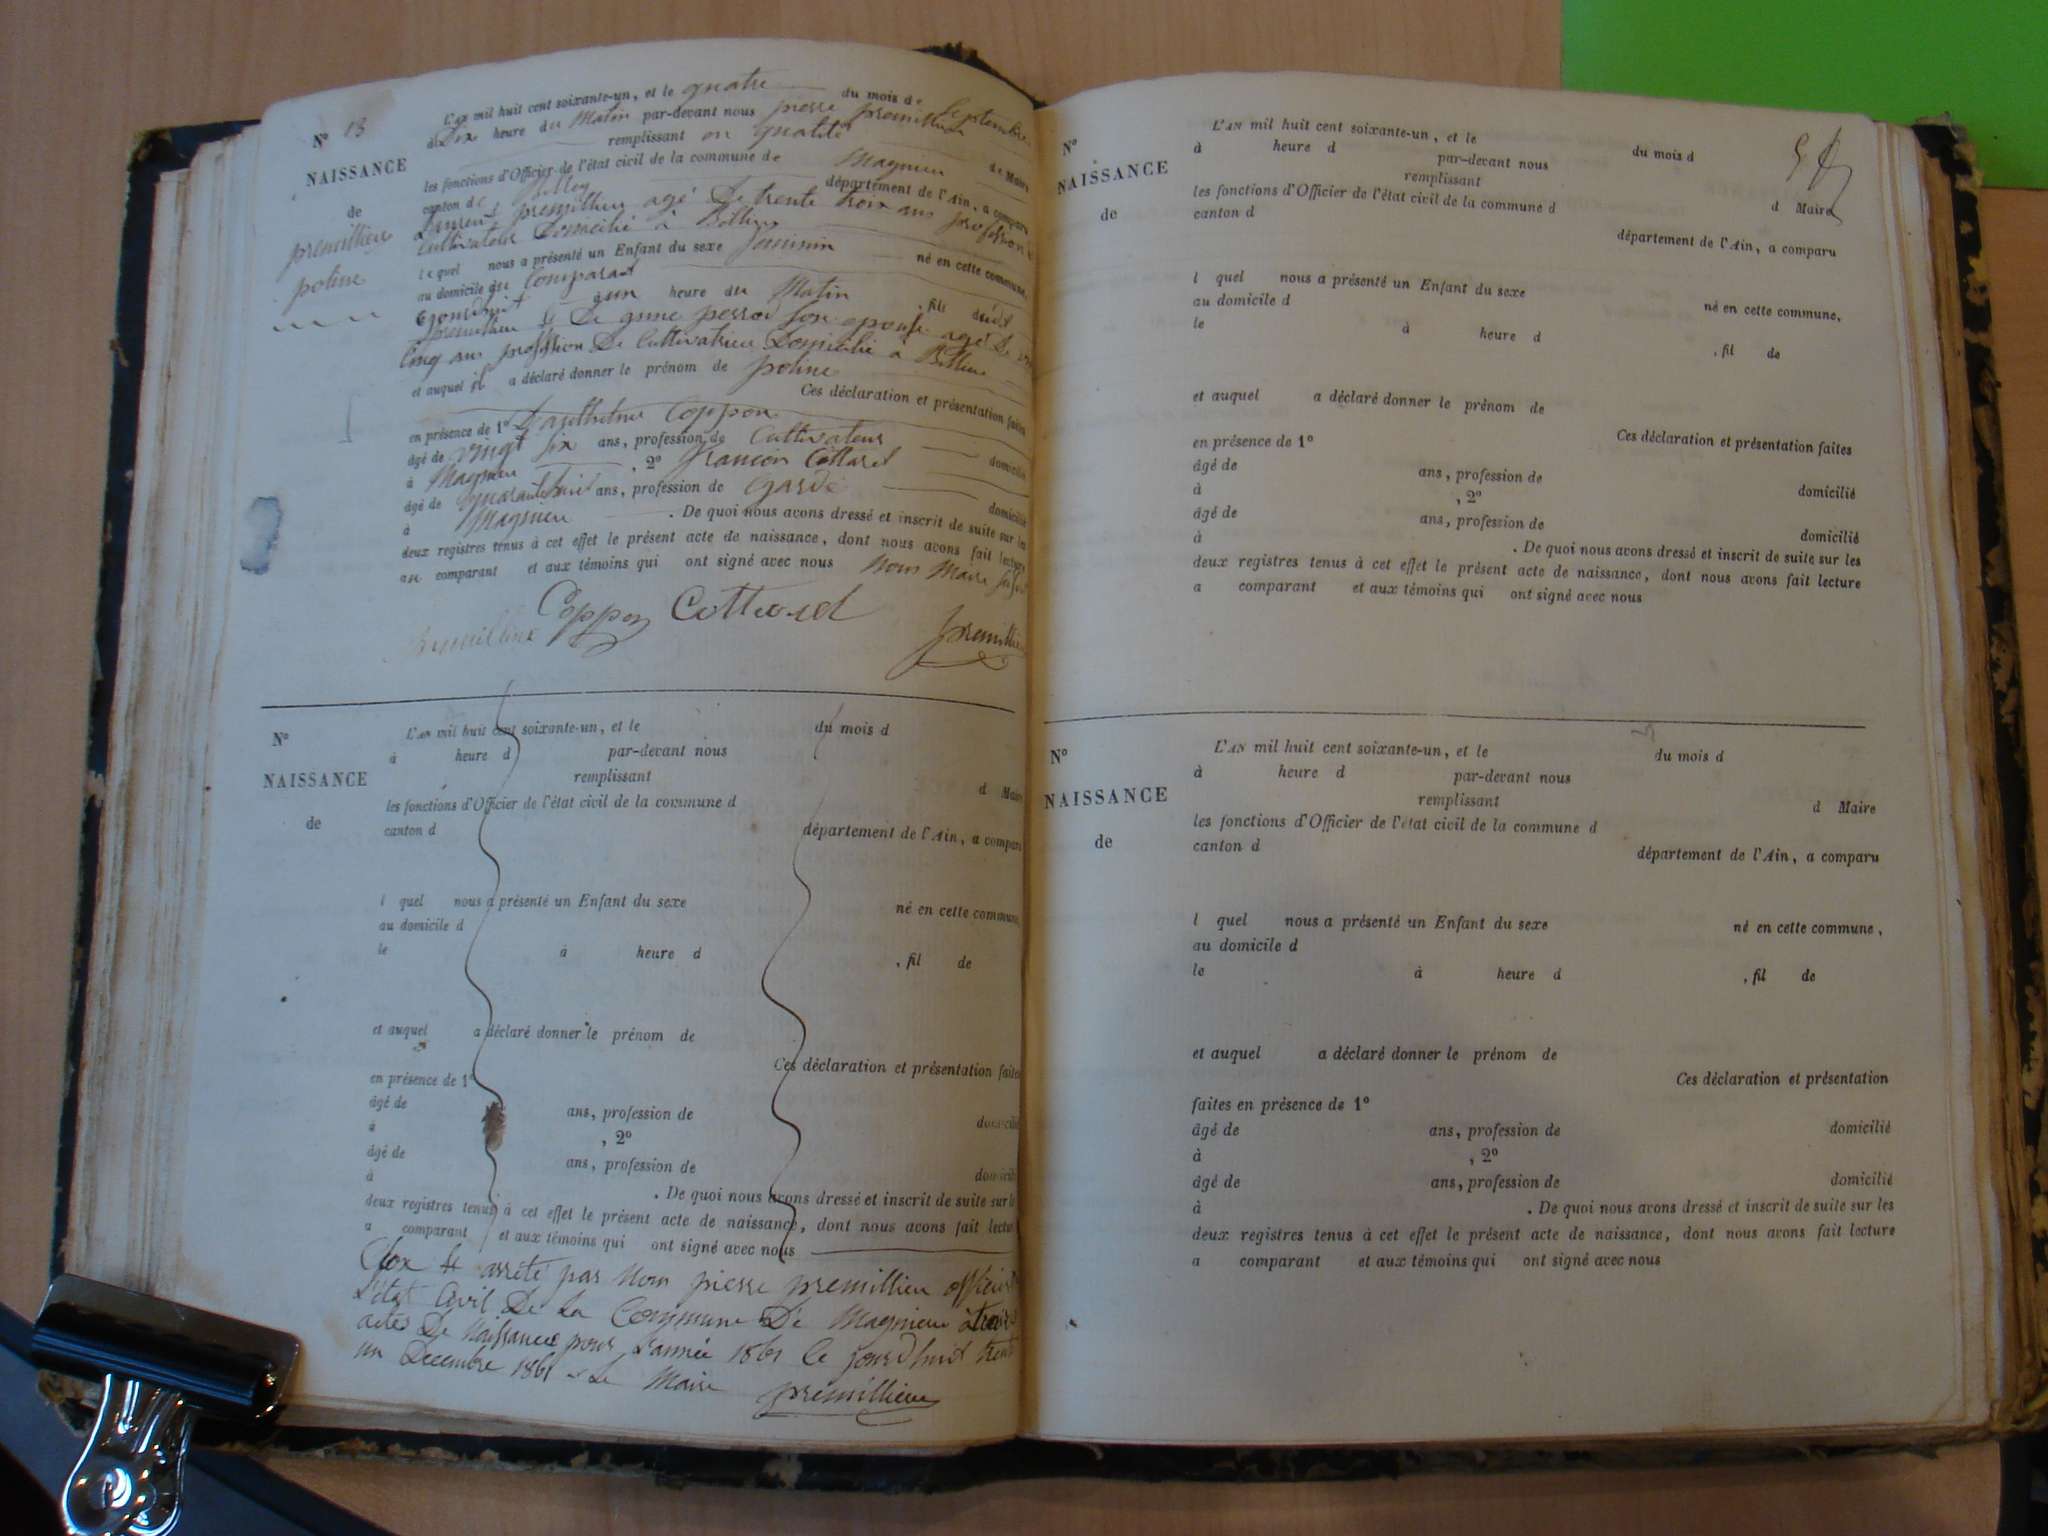 N° 13
NAISSANCE
de
premillieu
poline
L'AN mil huit cent soixante-un, et le quatre du mois de Septembre
à Dix heure du Matin par-devant nous pierre premillieu
remplissant en qualité de Maire
les fonctions d'Officier de l'état civil de la commune de Magnieu
canton de Belley département de l'Ain, a comparu
Laurent premillieu agé De trente trois ans profession
Cultivateur Domicilié à
lequel nous a présenté un Enfant du sexe feminin né en cette commune,
au domicile du Comparant
heure du Matin , fil dudit
premillieu & De son epouse agé De
Cinq ans profession De Cultivatrice Domicilié à
et auquel il a déclaré donner le prénom de poline
Ces déclaration et présentation faites
en présence de 1° Coppon
âgé de vingt six ans, profession de Cultivateur domicilié
à Magnieu , 2° francois Cottard
âgé de ans, profession de Garde domicilié
à Magnieu . De quoi nous avons dressé et inscrit de suite sur les
deux registres tenus à cet effet le présent acte de naissance, dont nous avons fait lecture
au comparant et aux témoins qui ont signé avec nous Nous Maire
premillieux Coppon Cottard premillieu
N°
NAISSANCE
de
L'AN mil huit cent soixante-un, et le du mois d
à heure d par-devant nous
remplissant d Maire
les fonctions d'Officier de l'état civil de la commune d
canton d département de l'Ain, a comparu
l quel nous a présenté un Enfant du sexe né en cette commune,
au domicile d
le à heure d , fil de
et auquel a déclaré donner le prénom de
Ces déclaration et présentation faites
en présence de 1°
âgé de ans, profession de domicilié
à , 2°
âgé de ans, profession de domicilié
à . De quoi nous avons dressé et inscrit de suite sur les
deux registres tenus à cet effet le présent acte de naissance, dont nous avons fait lecture
a comparant et aux témoins qui ont signé avec nous
Clox & arrêté par Nous pierre premillieu officier
L'état Civil De La Commune De Magnieu
actes De Naissance pour L'année 1861 Ce jourd'huit trente
un Decembre 1861 Le Maire premillieu
N°
NAISSANCE
de
L'AN mil huit cent soixante-un, et le du mois d
à heure d par-devant nous
remplissant d Maire
les fonctions d'Officier de l'état civil de la commune d
canton d département de l'Ain, a comparu
l quel nous a présenté un Enfant du sexe né en cette commune,
au domicile d
le à heure d , fil de
et auquel a déclaré donner le prénom de
Ces déclaration et présentation faites
en présence de 1°
âgé de ans, profession de domicilié
à , 2°
âgé de ans, profession de domicilié
à . De quoi nous avons dressé et inscrit de suite sur les
deux registres tenus à cet effet le présent acte de naissance, dont nous avons fait lecture
a comparant et aux témoins qui ont signé avec nous
N°
NAISSANCE
de
L'AN mil huit cent soixante-un, et le du mois d
à heure d par-devant nous
remplissant d Maire
les fonctions d'Officier de l'état civil de la commune d
canton d département de l'Ain, a comparu
l quel nous a présenté un Enfant du sexe né en cette commune,
au domicile d
le à heure d , fil de
et auquel a déclaré donner le prénom de
Ces déclaration et présentation
faites en présence de 1°
âgé de ans, profession de domicilié
à , 2°
âgé de ans, profession de domicilié
à . De quoi nous avons dressé et inscrit de suite sur les
deux registres tenus à cet effet le présent acte de naissance, dont nous avons fait lecture
a comparant et aux témoins qui ont signé avec nous